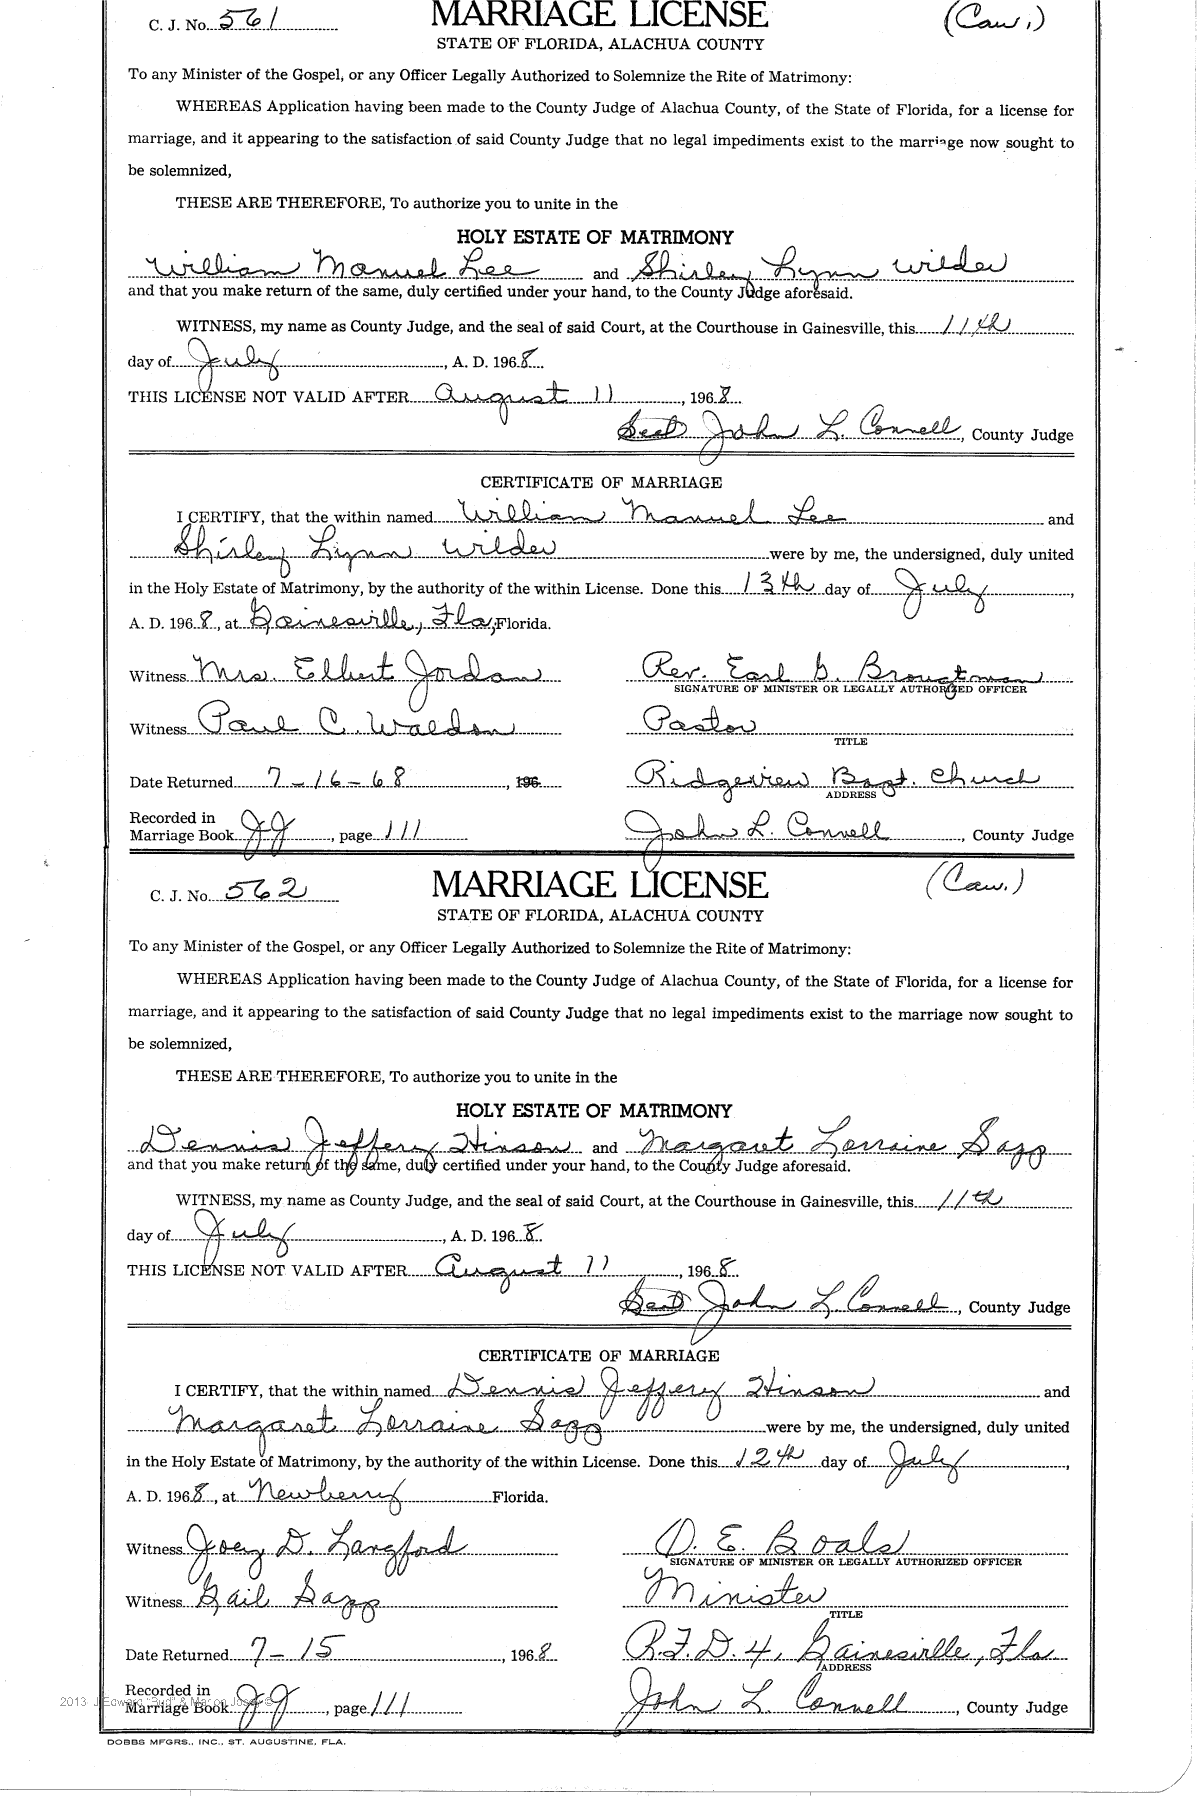 C. J. No. 561 MARRIAGE LICENSE (Cau.)
STATE OF FLORIDA, ALACHUA COUNTY
To any Minister of the Gospel, or any Officer Legally Authorized to Solemnize the Rite of Matrimony:
WHEREAS Application having been made to the County Judge of Alachua County, of the State of Florida, for a license for
marriage, and it appearing to the satisfaction of said County Judge that no legal impediments exist to the marriage now sought to
be solemnized,
THESE ARE THEREFORE, To authorize you to unite in the
HOLY ESTATE OF MATRIMONY
William Manuel Lee and Shirley Lynn Wilder
and that you make return of the same, duly certified under your hand, to the County Judge aforesaid.
WITNESS, my name as County Judge, and the seal of said Court, at the Courthouse in Gainesville, this 11th
day of July, A. D. 1968.
THIS LICENSE NOT VALID AFTER August 11, 1968.
Seal John L. Connell, County Judge
CERTIFICATE OF MARRIAGE
I CERTIFY, that the within named William Manuel Lee and
Shirley Lynn Wilder were by me, the undersigned, duly united
in the Holy Estate of Matrimony, by the authority of the within License. Done this 13th day of July,
A. D. 1968, at Gainesville, Fla, Florida.
Witness Mrs. Elbert Jordan Rev. Earl G. Brougtman
SIGNATURE OF MINISTER OR LEGALLY AUTHORIZED OFFICER
Witness Paul C. Waldon Pastor
TITLE
Date Returned 7-16-68, 196 Ridgeview Bapt. Church
ADDRESS
Recorded in
Marriage Book JJ, page 111 John L. Connell, County Judge
C. J. No. 562 MARRIAGE LICENSE (Cau.)
STATE OF FLORIDA, ALACHUA COUNTY
To any Minister of the Gospel, or any Officer Legally Authorized to Solemnize the Rite of Matrimony:
WHEREAS Application having been made to the County Judge of Alachua County, of the State of Florida, for a license for
marriage, and it appearing to the satisfaction of said County Judge that no legal impediments exist to the marriage now sought to
be solemnized,
THESE ARE THEREFORE, To authorize you to unite in the
HOLY ESTATE OF MATRIMONY
Dennis Jeffery Hinson and Margaret Lorraine Sapp
and that you make return of the same, duly certified under your hand, to the County Judge aforesaid.
WITNESS, my name as County Judge, and the seal of said Court, at the Courthouse in Gainesville, this 11th
day of July, A. D. 1968.
THIS LICENSE NOT VALID AFTER August 11, 1968.
Seal John L. Connell, County Judge
CERTIFICATE OF MARRIAGE
I CERTIFY, that the within named Dennis Jeffery Hinson and
Margaret Lorraine Sapp were by me, the undersigned, duly united
in the Holy Estate of Matrimony, by the authority of the within License. Done this 12th day of July,
A. D. 1968, at Newberry Florida.
Witness Joey D. Langford O. E. Boals
SIGNATURE OF MINISTER OR LEGALLY AUTHORIZED OFFICER
Witness Gail Sapp Minister
TITLE
Date Returned 7-15, 1968 R.F.D. 4, Gainesville, Fla
ADDRESS
Recorded in
Marriage Book JJ, page 111 John L. Connell, County Judge
DOBBS MFGRS., INC., ST. AUGUSTINE, FLA.